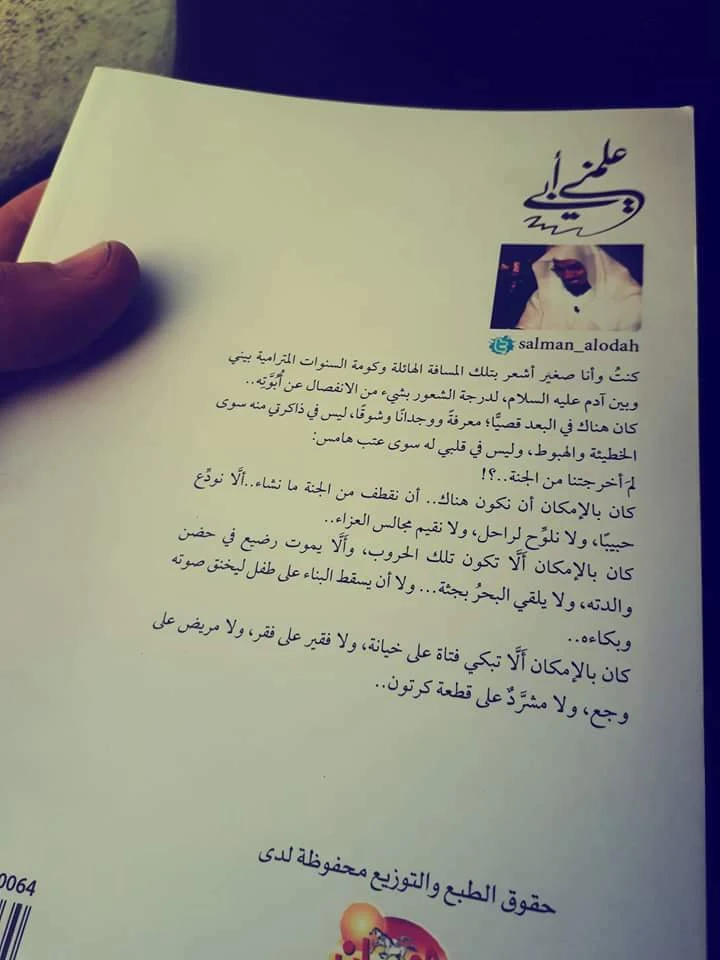 علمني أبي
salman_alodah
كنتُ وأنا صغير أشعر بتلك المسافة الهائلة وكومة السنوات المترامية بيني
وبين آدم عليه السلام، لدرجة الشعور بشيء من الانفصال عن أُبُوَّته..
كان هناك في البعد قصيًّا؛ معرفةً ووجدانًا وشوقًا، ليس في ذاكرتي منه سوى
الخطيئة والهبوط، وليس في قلبي له سوى عتب هامس:
لمَ أخرجتنا من الجنة..؟!
كان بالإمكان أن نكون هناك.. أن نقطف من الجنة ما نشاء..ألَّا نودِّع
حبيبًا، ولا نلوِّح لراحل، ولا نقيم مجالس العزاء..
كان بالإمكان ألَّا تكون تلك الحروب، وألَّا يموت رضيع في حضن
والدته، ولا يلقي البحرُ بجثة... ولا أن يسقط البناء على طفل ليخنق صوته
وبكاءه..
كان بالإمكان ألَّا تبكي فتاة على خيانة، ولا فقير على فقر، ولا مريض على
وجع، ولا مشرَّدٌ على قطعة كرتون..
حقوق الطبع والتوزيع محفوظة لدى
0064